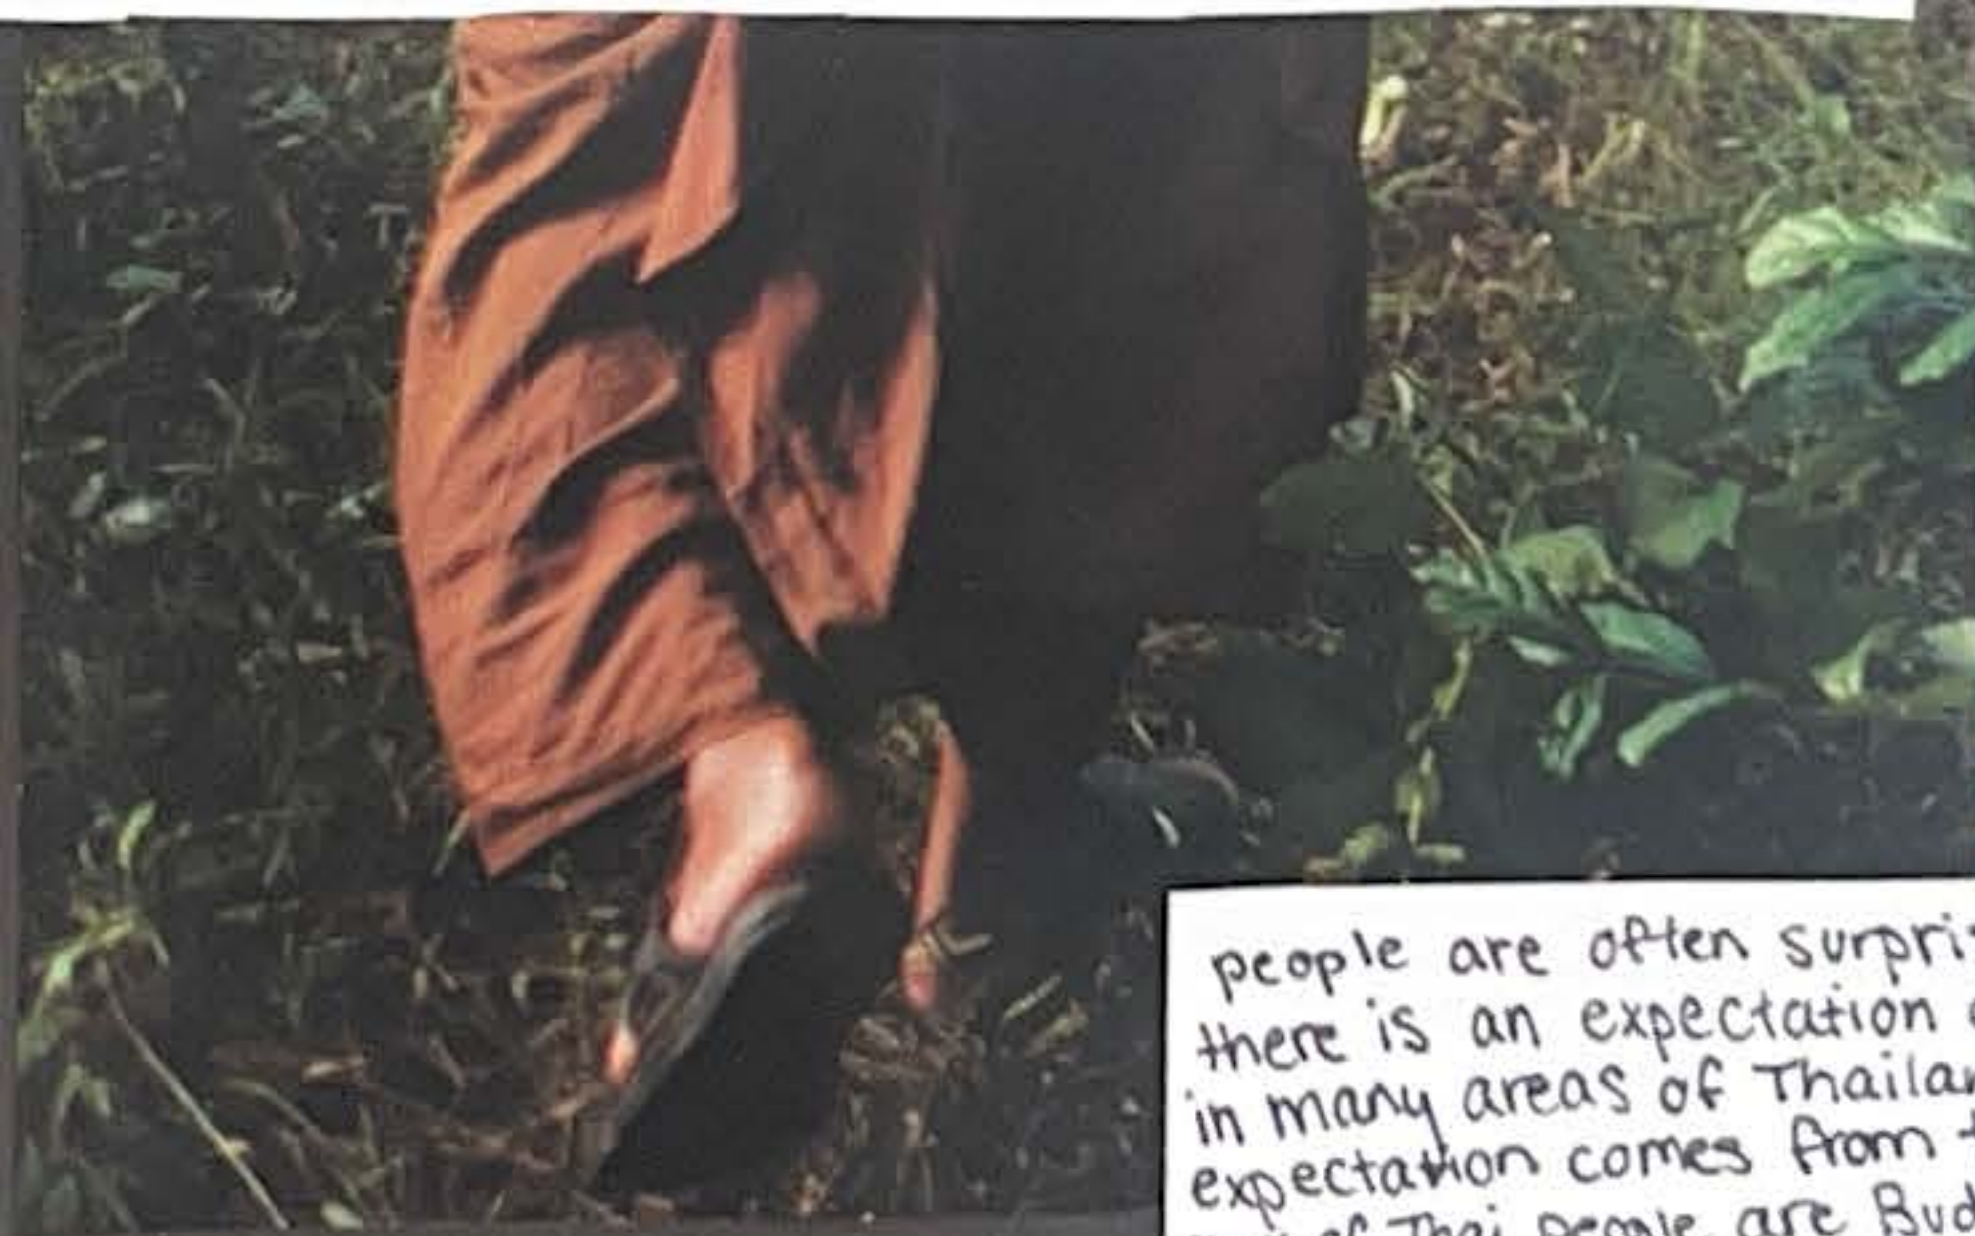 people are often surpri
there is an expectation
in many areas of Thailan
expectation comes from
of Thai people are Bud